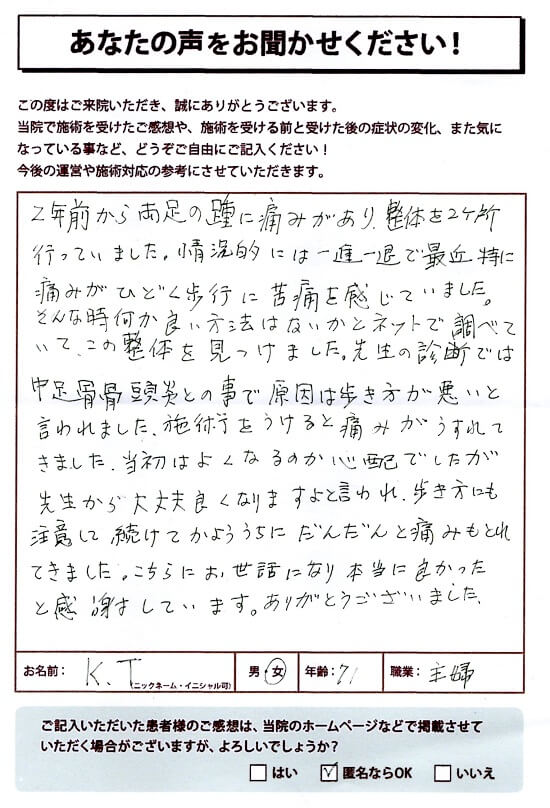 あなたの声をお聞かせください！
この度はご来院いただき、誠にありがとうございます。
当院で施術を受けたご感想や、施術を受ける前と受けた後の症状の変化、また気に
なっている事など、どうぞご自由にご記入ください！
今後の運営や施術対応の参考にさせていただきます。
2年前から両足の踵に痛みがあり、整体を2ヶ所
行っていました。情況的には一進一退で最近特に
痛みがひどく歩行に苦痛を感じていました。
そんな時何か良い方法はないかとネットで調べて
いて、この整体を見つけました。先生の診断では
中足骨骨頭炎との事で原因は歩き方が悪いと
言われました。施術をうけると痛みがうすれて
きました。当初はよくなるのか心配でしたが
先生から大丈夫良くなりますよと言われ、歩き方にも
注意して続けてかよううちにだんだんと痛みもとれ
てきました。こちらにお世話になり本当に良かった
と感謝しています。ありがとうございました。
お名前： K.T (ニックネーム・イニシャル可) 男・女 年齢： 71 職業： 主婦
ご記入いただいた患者様のご感想は、当院のホームページなどで掲載させて
いただく場合がございますが、よろしいでしょうか？
□ はい ☑ 匿名ならOK □ いいえ